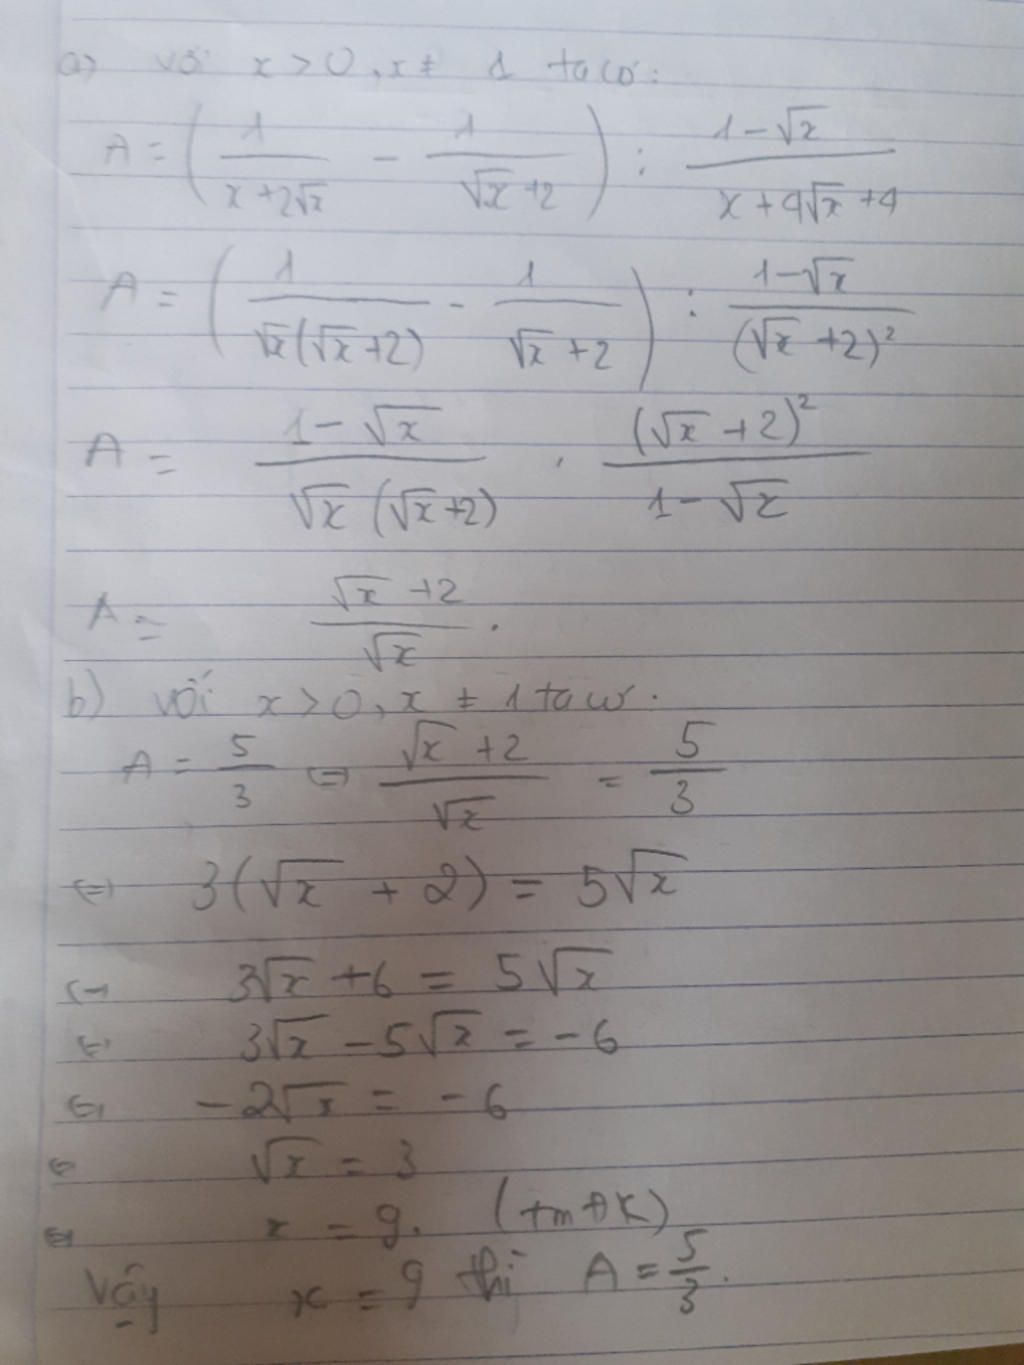 a) với x > 0, x ≠ 1 ta có:
A = (1/(x+2√x) - 1/(√x+2)) : (1-√x)/(x+4√x+4)
A = (1/(√x(√x+2)) - 1/(√x+2)) : (1-√x)/(√x+2)²
A = (1-√x)/(√x(√x+2)) . (√x+2)²/(1-√x)
A = (√x+2)/√x .
b) với x > 0, x ≠ 1 ta có.
A = 5/3 ⇔ (√x+2)/√x = 5/3
⇔ 3(√x + 2) = 5√x
⇔ 3√x + 6 = 5√x
⇔ 3√x - 5√x = -6
⇔ -2√x = -6
⇔ √x = 3
⇔ x = 9. (tmđK)
Vậy x = 9 thì A = 5/3.